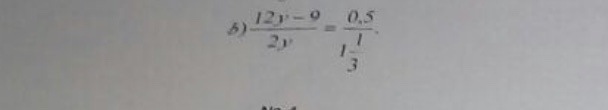 б) \frac{12y - 9}{2y} = \frac{0,5}{1\frac{1}{3}}.